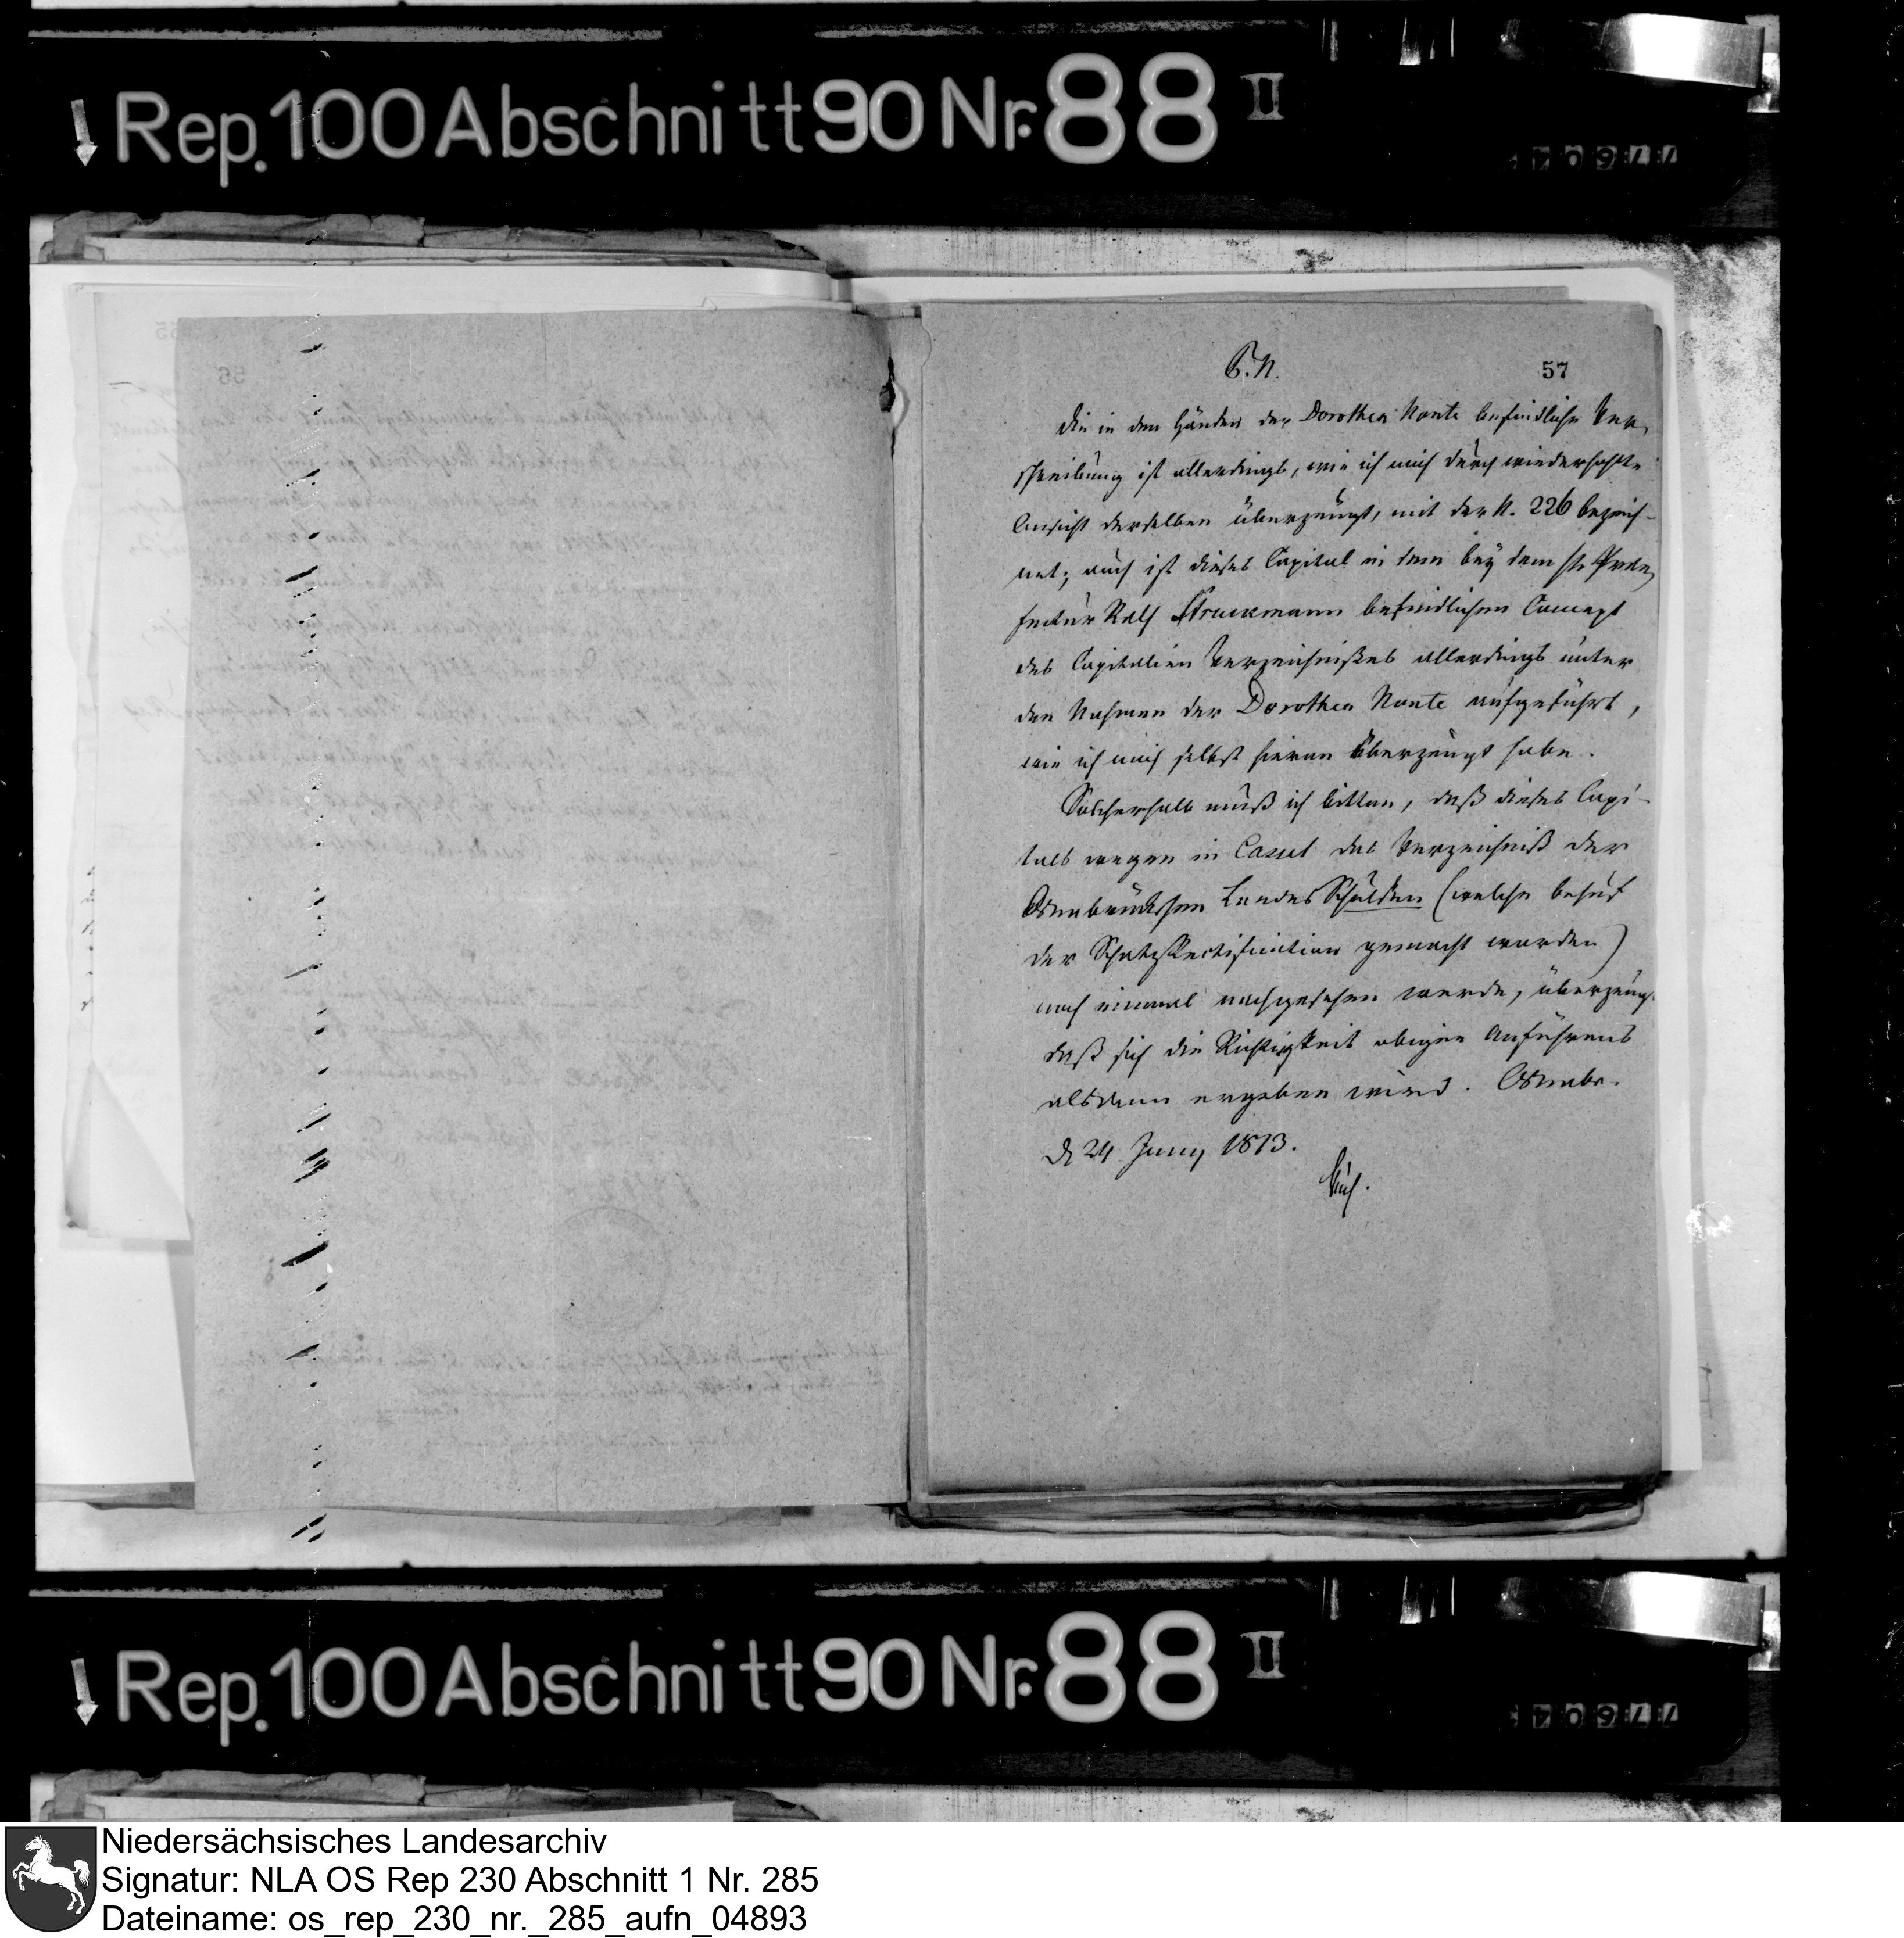 Rep. 100 Abschnitt 90 Nr. 88 II
P. N.
57
Die in den Händen der Dorothea Nonte befindliche Ver,
schreibung ist allerdings, wie ich mich durch wiederhohlte
Ansicht derselben überzeügt, mit der N. 226 bezeich-
net; auch ist dieses Capital in dem bey dem H. Prae,
fectur Rath Struckmann befindlichen Concept
des Capitalien Verzeichnißes allerdings unter
den Nahmen der Dorothea Nonte aufgeführt,
wie ich mich selbst hievon überzeugt habe.
Solcherhalb muß ich bitten, daß dieses Capi-
tals wegen in Cassel das Verzeichniß der
Osnabrückschen Landes Schulden (welche behuf
der Schatz Rectification gemacht worden)
noch einmal nachgesehen werde, überzeugt
daß sich die Richtigkeit obigen Anführens
alsdann ergeben wird. Osnabr.
d 24 Juny 1813.
Rep. 100 Abschnitt 90 Nr. 88 II
Niedersächsisches Landesarchiv
Signatur: NLA OS Rep 230 Abschnitt 1 Nr. 285
Dateiname: os_rep_230_nr._285_aufn_04893